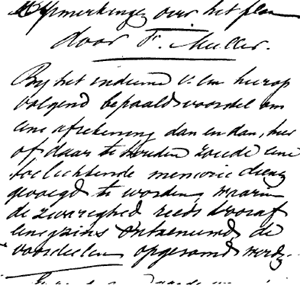 Opmerkingen over het plan
door F. Muller.
Bij het indienen v. een hierop
volgend bepaald voorstel om
eene afrekening dan en dan, hier
of daar te houden zoude eene
toelichtende memorie dienen
gevoegd te worden waarin
de zwarigheid reeds vooraf
eenigzins ontzenuwd & de
voordeelen opgesomd werden.